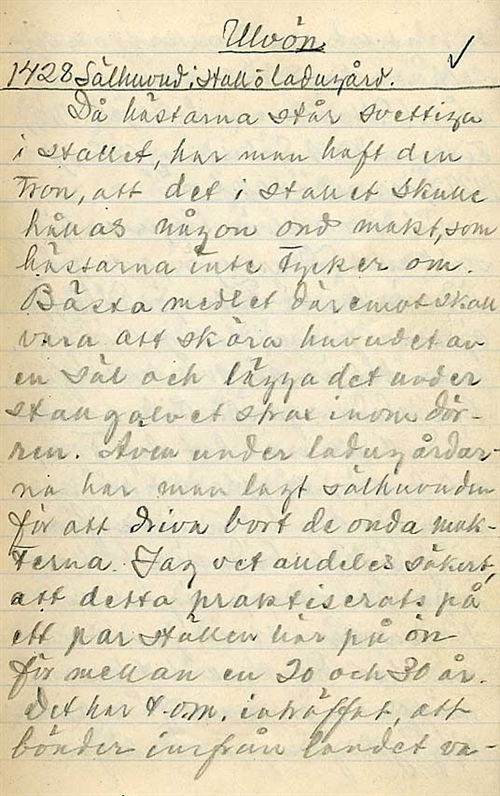 Ulvön
1428 Sälhuvud i stall o ladugård.
Då hästarna står svettiga
i stallet, har man haft den
tron, att det i stallet skulle
hållas någon ond makt, som
hästarna inte tycker om.
Bästa medlet däremot skall
vara att skära huvudet av
en säl och lägga det under
stallgolvet strax inom dör-
ren. Även under ladugårdar-
na har man lagt sälhuvuden
för att driva bort de onda mak-
terna. Jag vet alldeles säkert,
att detta praktiserats på
ett par ställen här på ön
för mellan en 20 och 30 år.
Det har t.o.m. inträffat, att
bönder inifrån landet va-